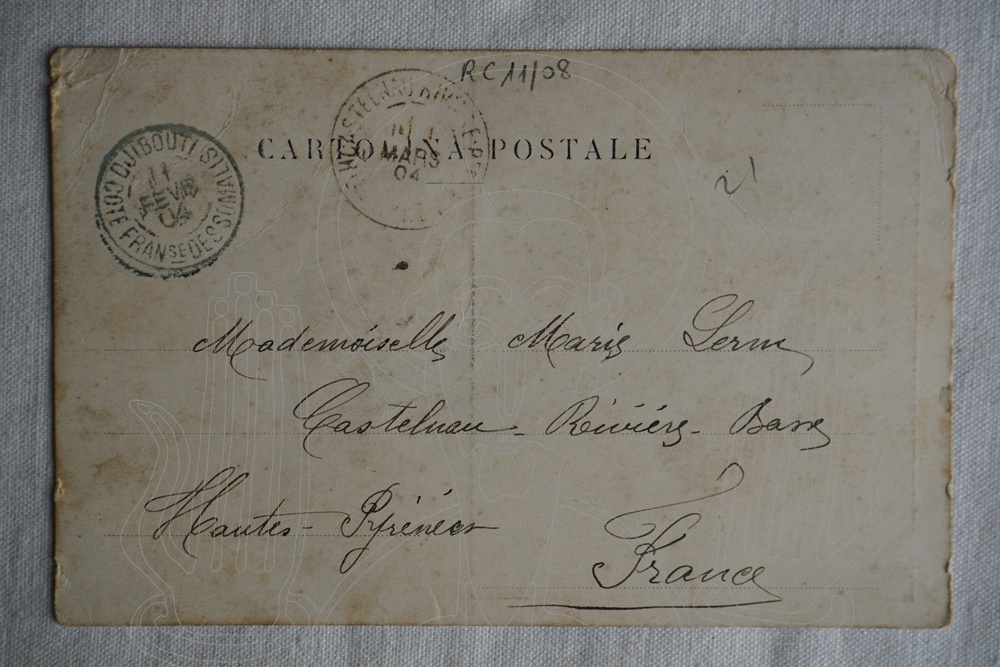 RC 11/08
CARTOLINA POSTALE
DJIBOUTI
11
FEVR
04
COTE FRANSE DES SOMALIS
CASTELNAU
MARS
04
21
Mademoiselle Marie
Castelnau-Rivière-Basse
Hautes-Pyrénées
France